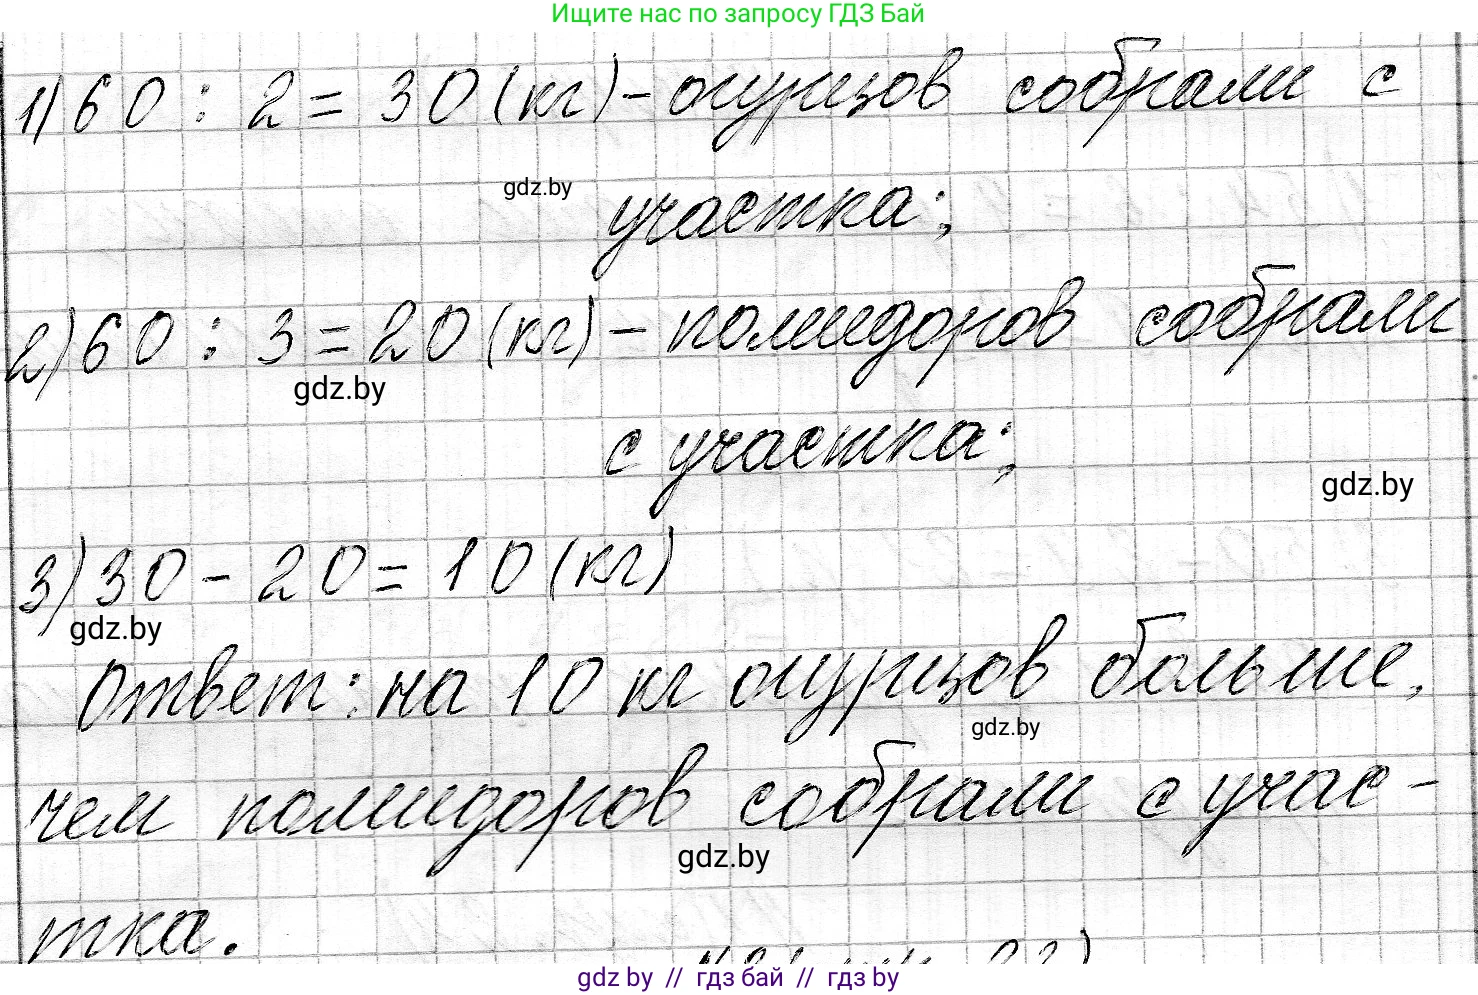 Ищите нас по запросу ГДЗ Бай
1) 60 : 2 = 30 (кг) - огурцов собрали с
gdz.by
участка;
2) 60 : 3 = 20 (кг) - помидоров собрали
gdz.by
с участка;
gdz.by
3) 30 - 20 = 10 (кг)
gdz.by
Ответ: на 10 кг огурцов больше,
gdz.by
чем помидоров собрали с учас-
gdz.by
тка.
gdz.by // гдз бай // гдз by